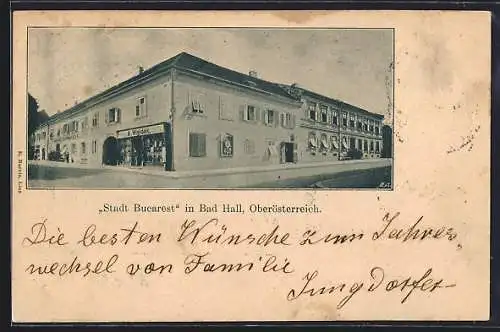 „Stadt Bucarest" in Bad Hall, Oberösterreich.
Die besten Wünsche zum Jahres-
wechsel von Familie
Jungdorfer